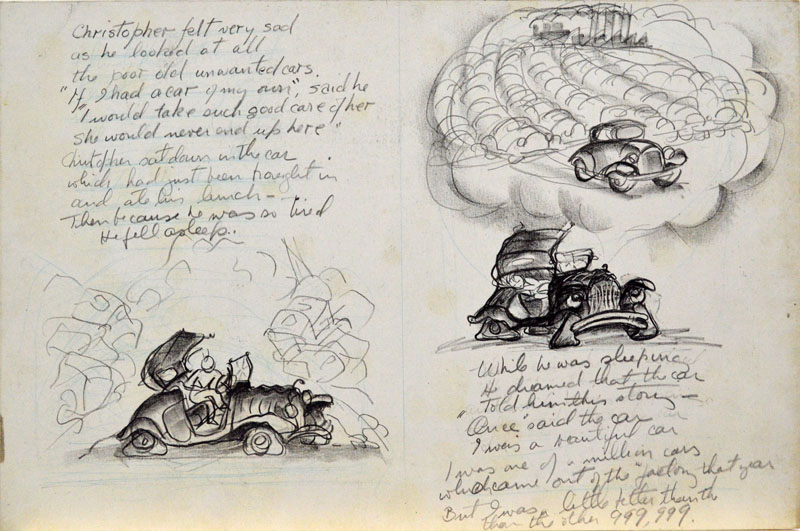 Christopher felt very sad
as he looked at all
the poor old unwanted cars.
"If I had a car of my own", said he
"I would take such good care of her
she would never end up here"
Christopher sat down in the car
which had just been brought in
and ate his lunch -
Then because he was so tired
He fell asleep..
While he was sleeping
He dreamed that the car
Told him this story -
"Once" said the car
I was a beautiful car
I was one of a million cars
which came out of the factory that year
But I was a little better than the
than the other 999,999.